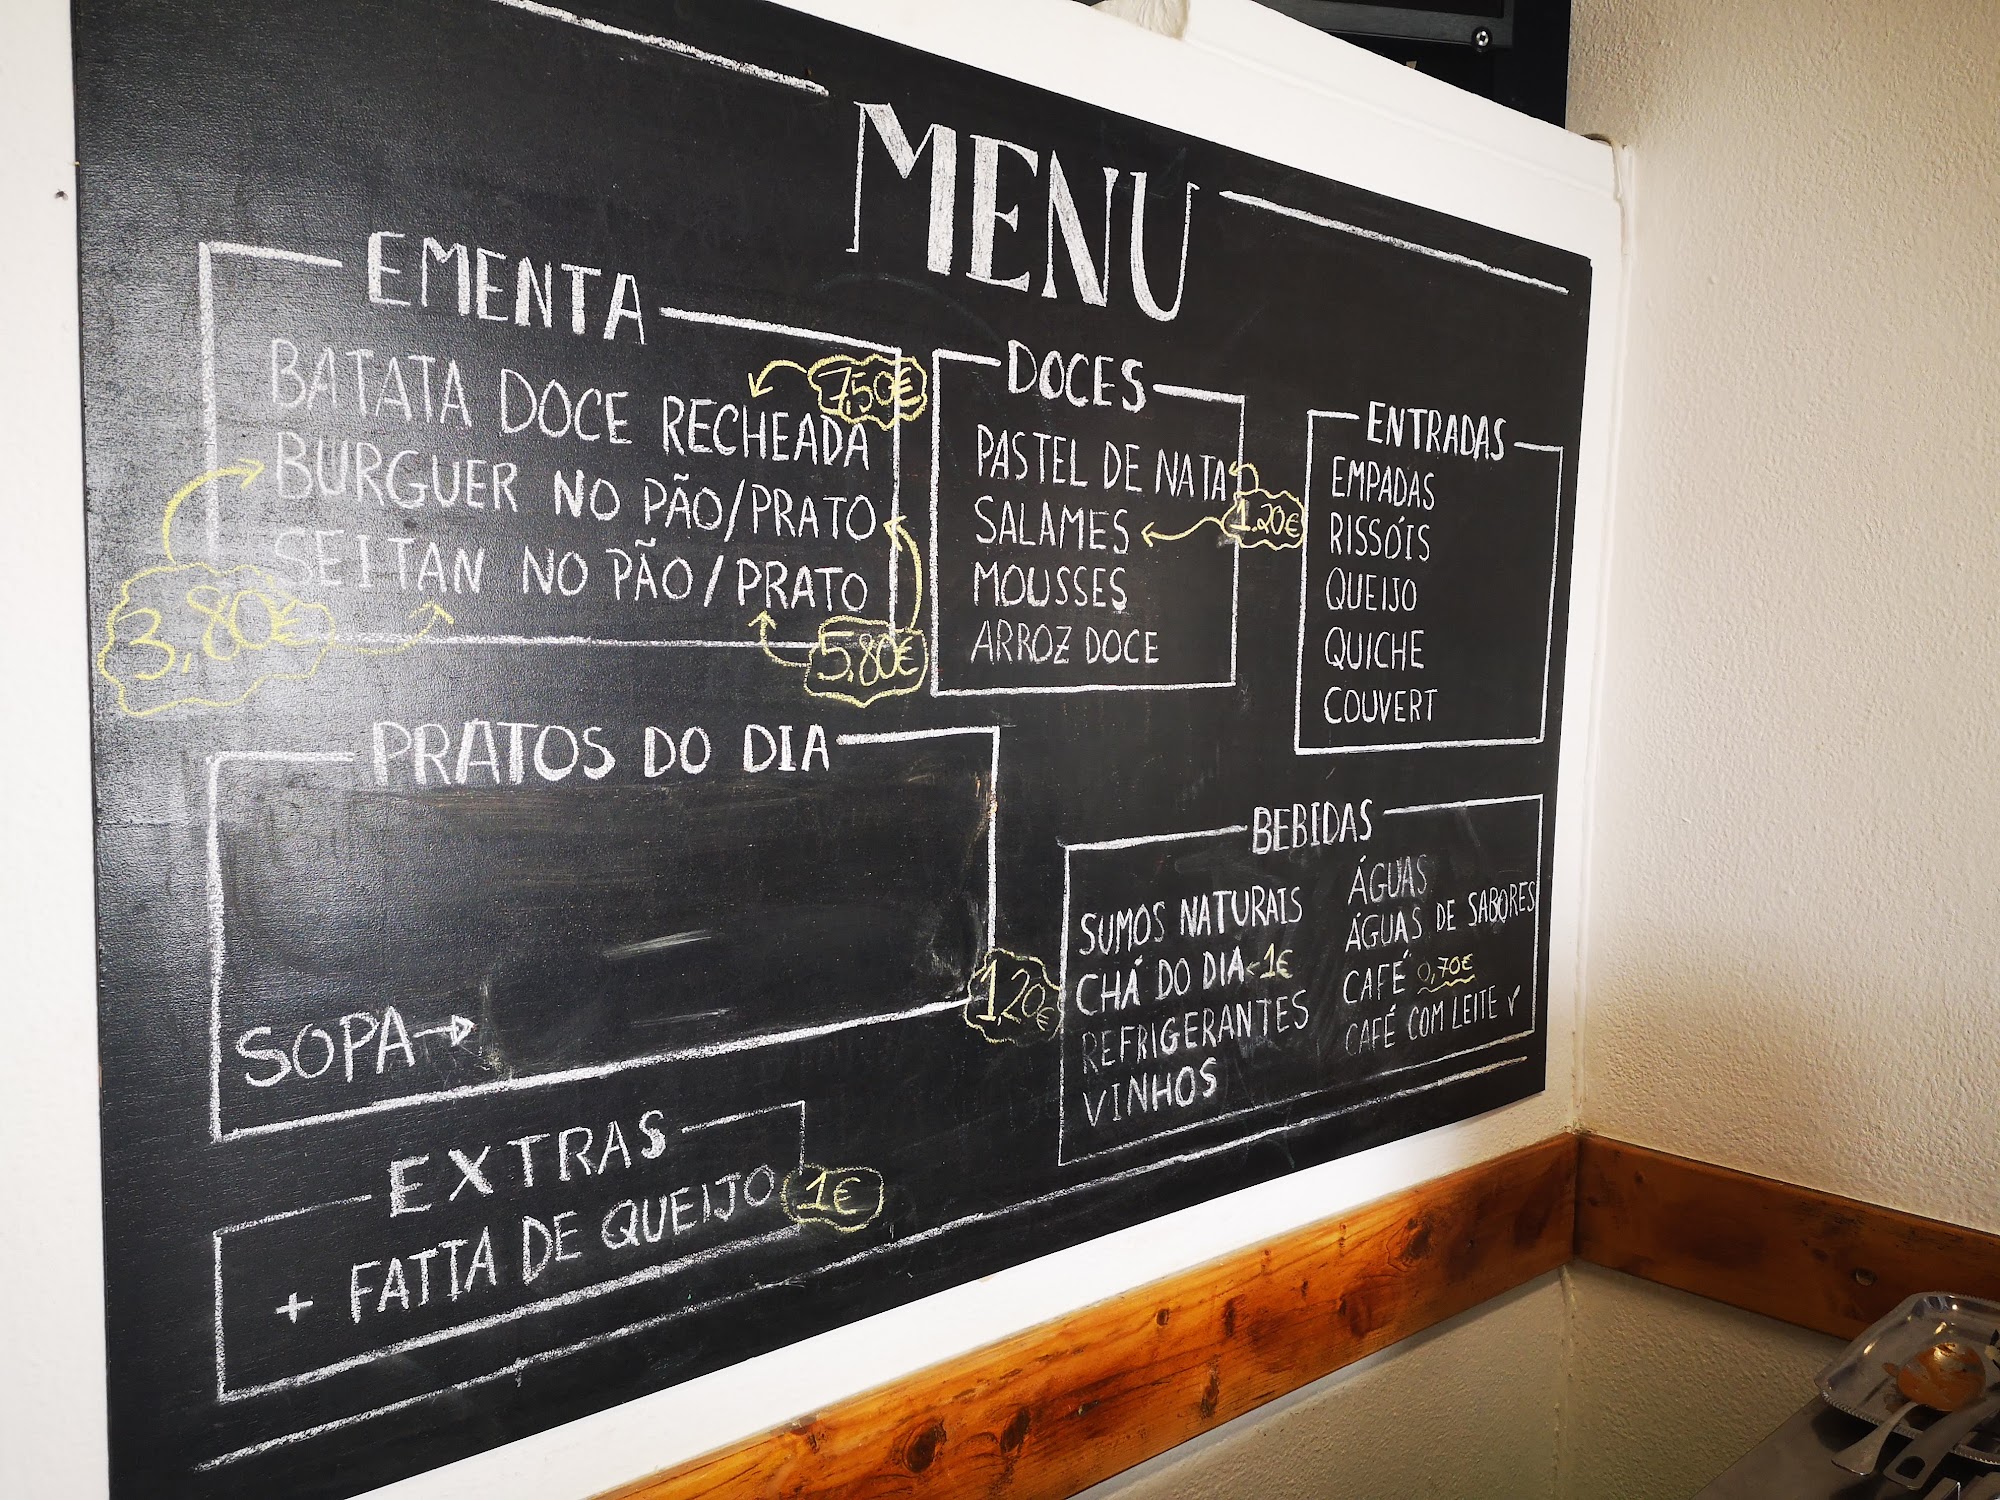 MENU
EMENTA
BATATA DOCE RECHEADA 7,50€
BURGUER NO PÃO/PRATO
SEITAN NO PÃO/PRATO
3,80€
5,80€
DOCES
PASTEL DE NATA
SALAMES
1.20€
MOUSSES
ARROZ DOCE
ENTRADAS
EMPADAS
RISSÓIS
QUEIJO
QUICHE
COUVERT
PRATOS DO DIA
SOPA
1,20€
BEBIDAS
SUMOS NATURAIS
CHÁ DO DIA <1€
REFRIGERANTES
VINHOS
ÁGUAS
ÁGUAS DE SABORES
CAFÉ 0,70€
CAFÉ COM LEITE
EXTRAS
+ FATIA DE QUEIJO 1€